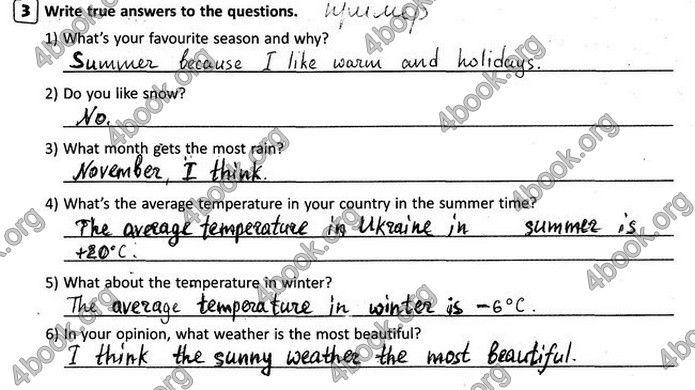 3 Write true answers to the questions. Пример
1) What's your favourite season and why?
Summer because I like warm and holidays.
2) Do you like snow?
No.
3) What month gets the most rain?
November, I think.
4) What's the average temperature in your country in the summer time?
The average temperature in Ukraine in summer is
+20°C.
5) What about the temperature in winter?
The average temperature in winter is -6°C.
6) In your opinion, what weather is the most beautiful?
I think the sunny weather the most beautiful.
4book.org